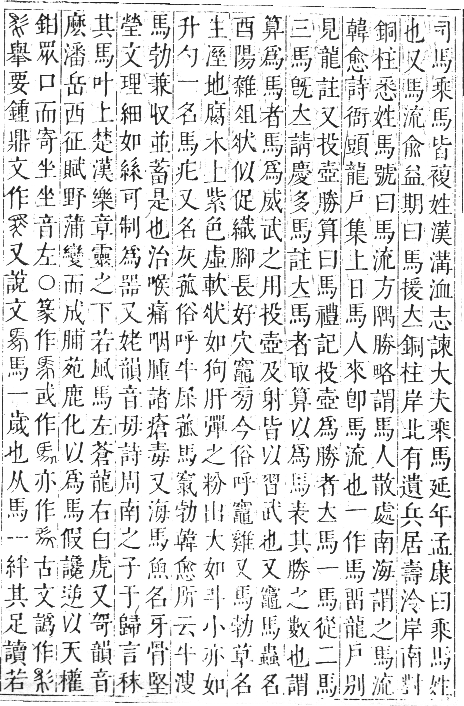 司馬乘馬皆複姓漢溝洫志諫大夫乘馬延年孟康曰乘馬姓
也又馬流俞益期曰馬援立銅柱岸北有遺兵居壽泠岸南對
銅柱悉姓馬號曰馬流方隅勝略謂馬人散處南海謂之馬流
韓愈詩衙頭龍戶集上日馬人來卽馬流也一作馬畱龍戶別
見龍註又投壺勝算曰馬禮記投壺爲勝者立馬一馬從二馬
三馬旣立請慶多馬註立馬者取算以爲馬表其勝之數也謂
算爲馬者馬爲威武之用投壺及射皆以習武也又竈馬蟲名
酉陽雜俎狀似促織腳長好穴竈旁今俗呼竈雞又馬勃草名
生溼地腐木上紫色虛軟狀如狗肝彈之粉出大如斗小亦如
升勺一名馬疕又名灰菰俗呼牛屎菰馬窴勃韓愈所云牛溲
馬勃兼收並蓄是也治喉痛咽腫諸瘡毒又海馬魚名牙骨堅
瑩文理細如絲可制爲器又姥韻音毋詩周南之子于歸言秣
其馬叶上楚漢樂章靈之下若風馬左蒼龍右白虎又哿韻音
麼潘岳西征賦野蒲變而成脯苑鹿化以爲馬假讒逆以天權
鉗眾口而寄坐坐音左○篆作 或作 亦作 古文譌作
舉要鍾鼎文作 又說文 馬一歲也从馬一絆其足讀若